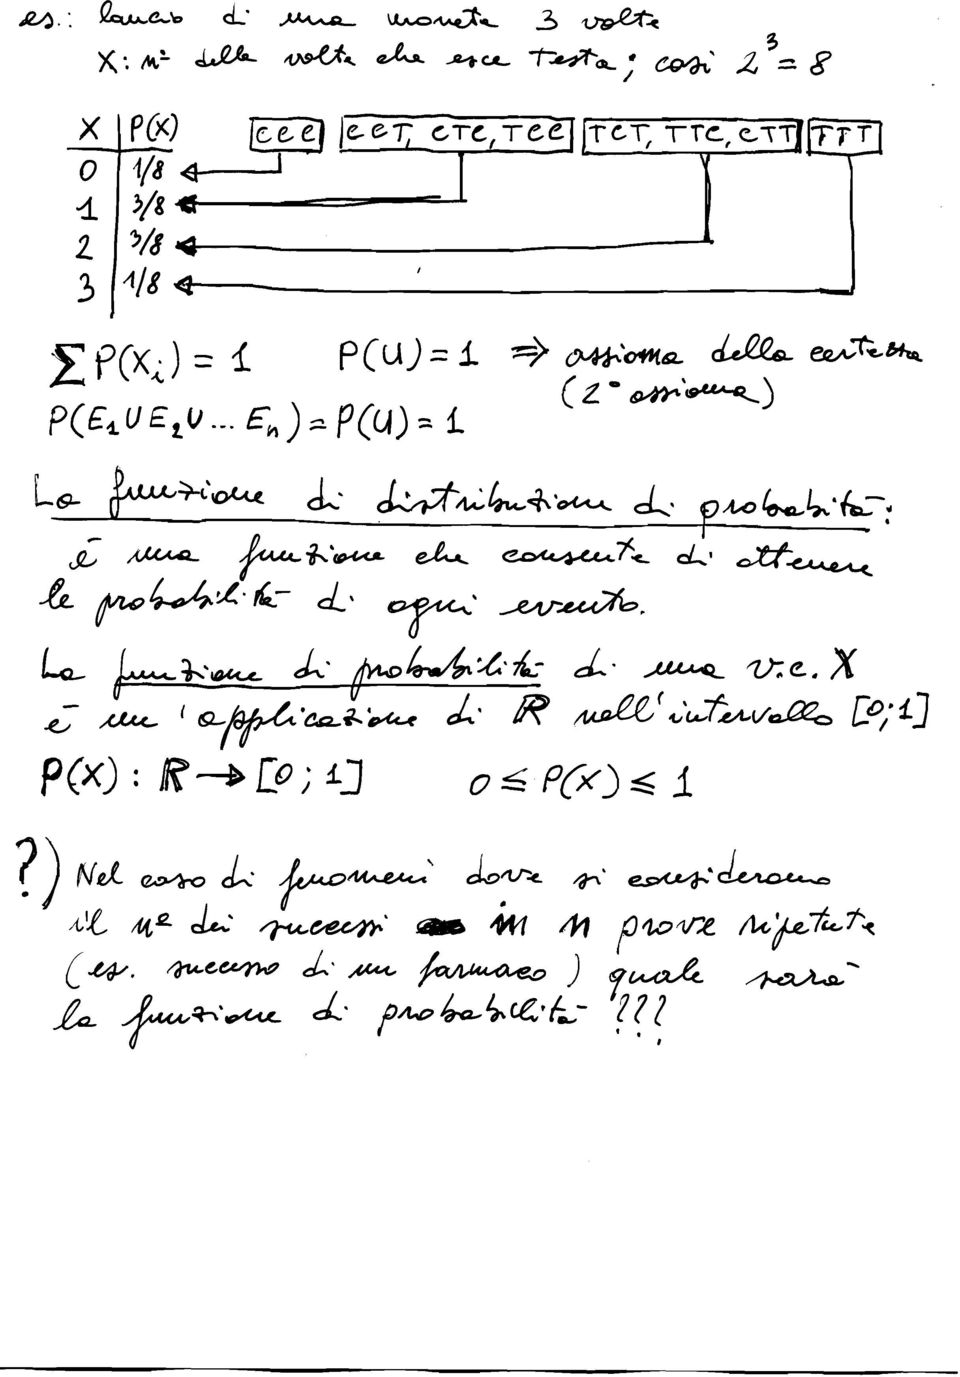 es.: lancio di una moneta 3 volte
X: nº delle volte che esce Testa; casi 2³ = 8
X P(X) CCC CCT, CTC, TCC TCT, TTC, CTT TTT
0 1/8
1 3/8
2 3/8
3 1/8
∑P(Xi) = 1 P(U) = 1 ⇒ assioma della certezza
(2° assioma)
P(E1 U E2 U ... En) = P(U) = 1
La funzione di distribuzione di probabità:
è una funzione che consente di ottenere
le probabilità di ogni evento.
La funzione di probabilità di una v.c. X
è un'applicazione di ℝ nell'intervallo [0;1]
P(X) : ℝ → [0 ; 1] 0 ≤ P(X) ≤ 1
?) Nel caso di fenomeni dove si considerano
il nº dei successi in n prove ripetute
(es. successo di un farmaco) quale sarà
la funzione di probabilità ???